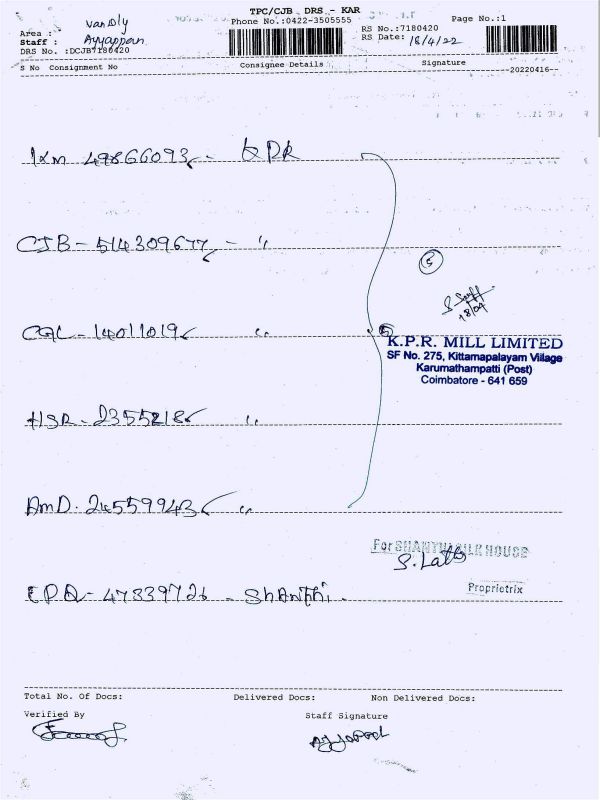 TPC/CJB DRS - KAR
Phone No.:0422-3505555
Page No.:1
Area : van Dly
Staff : Ayyappan
DRS No. :DCJB7180420
RS No.:7180420
RS Date: 18/4/22
S No Consignment No Consignee Details Signature
20220416
49866093 - KPR
CJB - 514309677 - "
CGL - 14011019 "
HSR - 2355218 "
AMD. 24559943 "
5
S. 
18/04
5
K.P.R. MILL LIMITED
SF No. 275, Kittamapalayam Village
Karumathampatti (Post)
Coimbatore - 641 659
For SHANTHI SILK HOUSE
S. Latha
Proprietrix
47839726 - Shanthi.
Total No. Of Docs: Delivered Docs: Non Delivered Docs:
Verified By Staff Signature